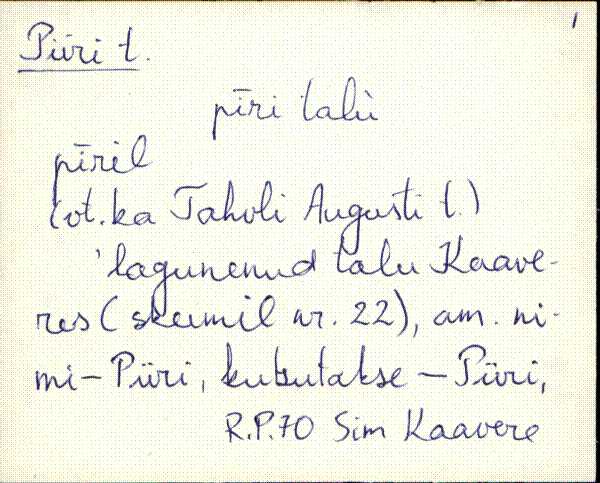 1
Piiri t.
pīri talù
pīril
(ot. ka Taholi Augusti t.)
'lagunenud talu Kaave-
res (skeemil nr. 22), am. ni-
mi - Piiri, kutsutakse - Piiri,
R.P.70 Sim Kaavere